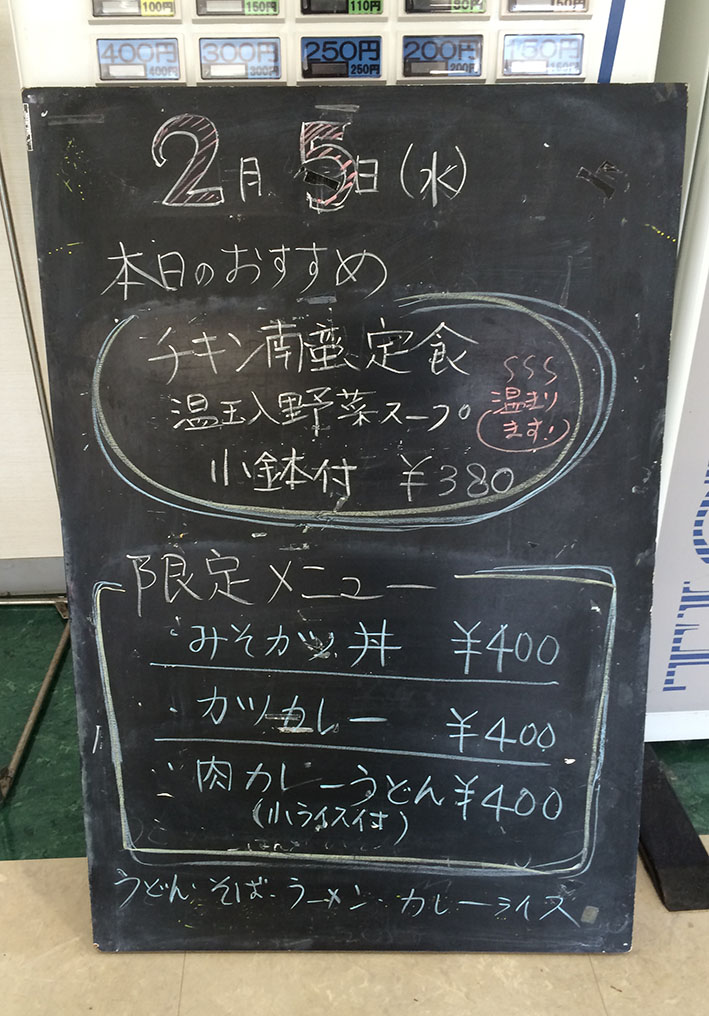 100円 150円 110円 90円 150円
400円 300円 250円 200円
400円 300円 250円 200円
2月5日(水)
本日のおすすめ
チキン南蛮定食
温玉入野菜スープ
小鉢付 ¥380
温まり
ます!)
限定メニュー
・みそカツ丼 ¥400
・カツカレー ¥400
・肉カレーうどん ¥400
(小ライス付)
うどん・そば・ラーメン・カレーライス